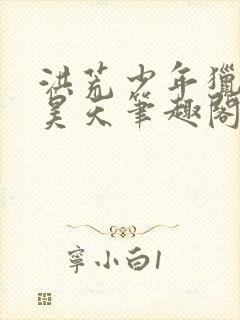 洪荒少年獵
昊天筆趣閣
寧小白1